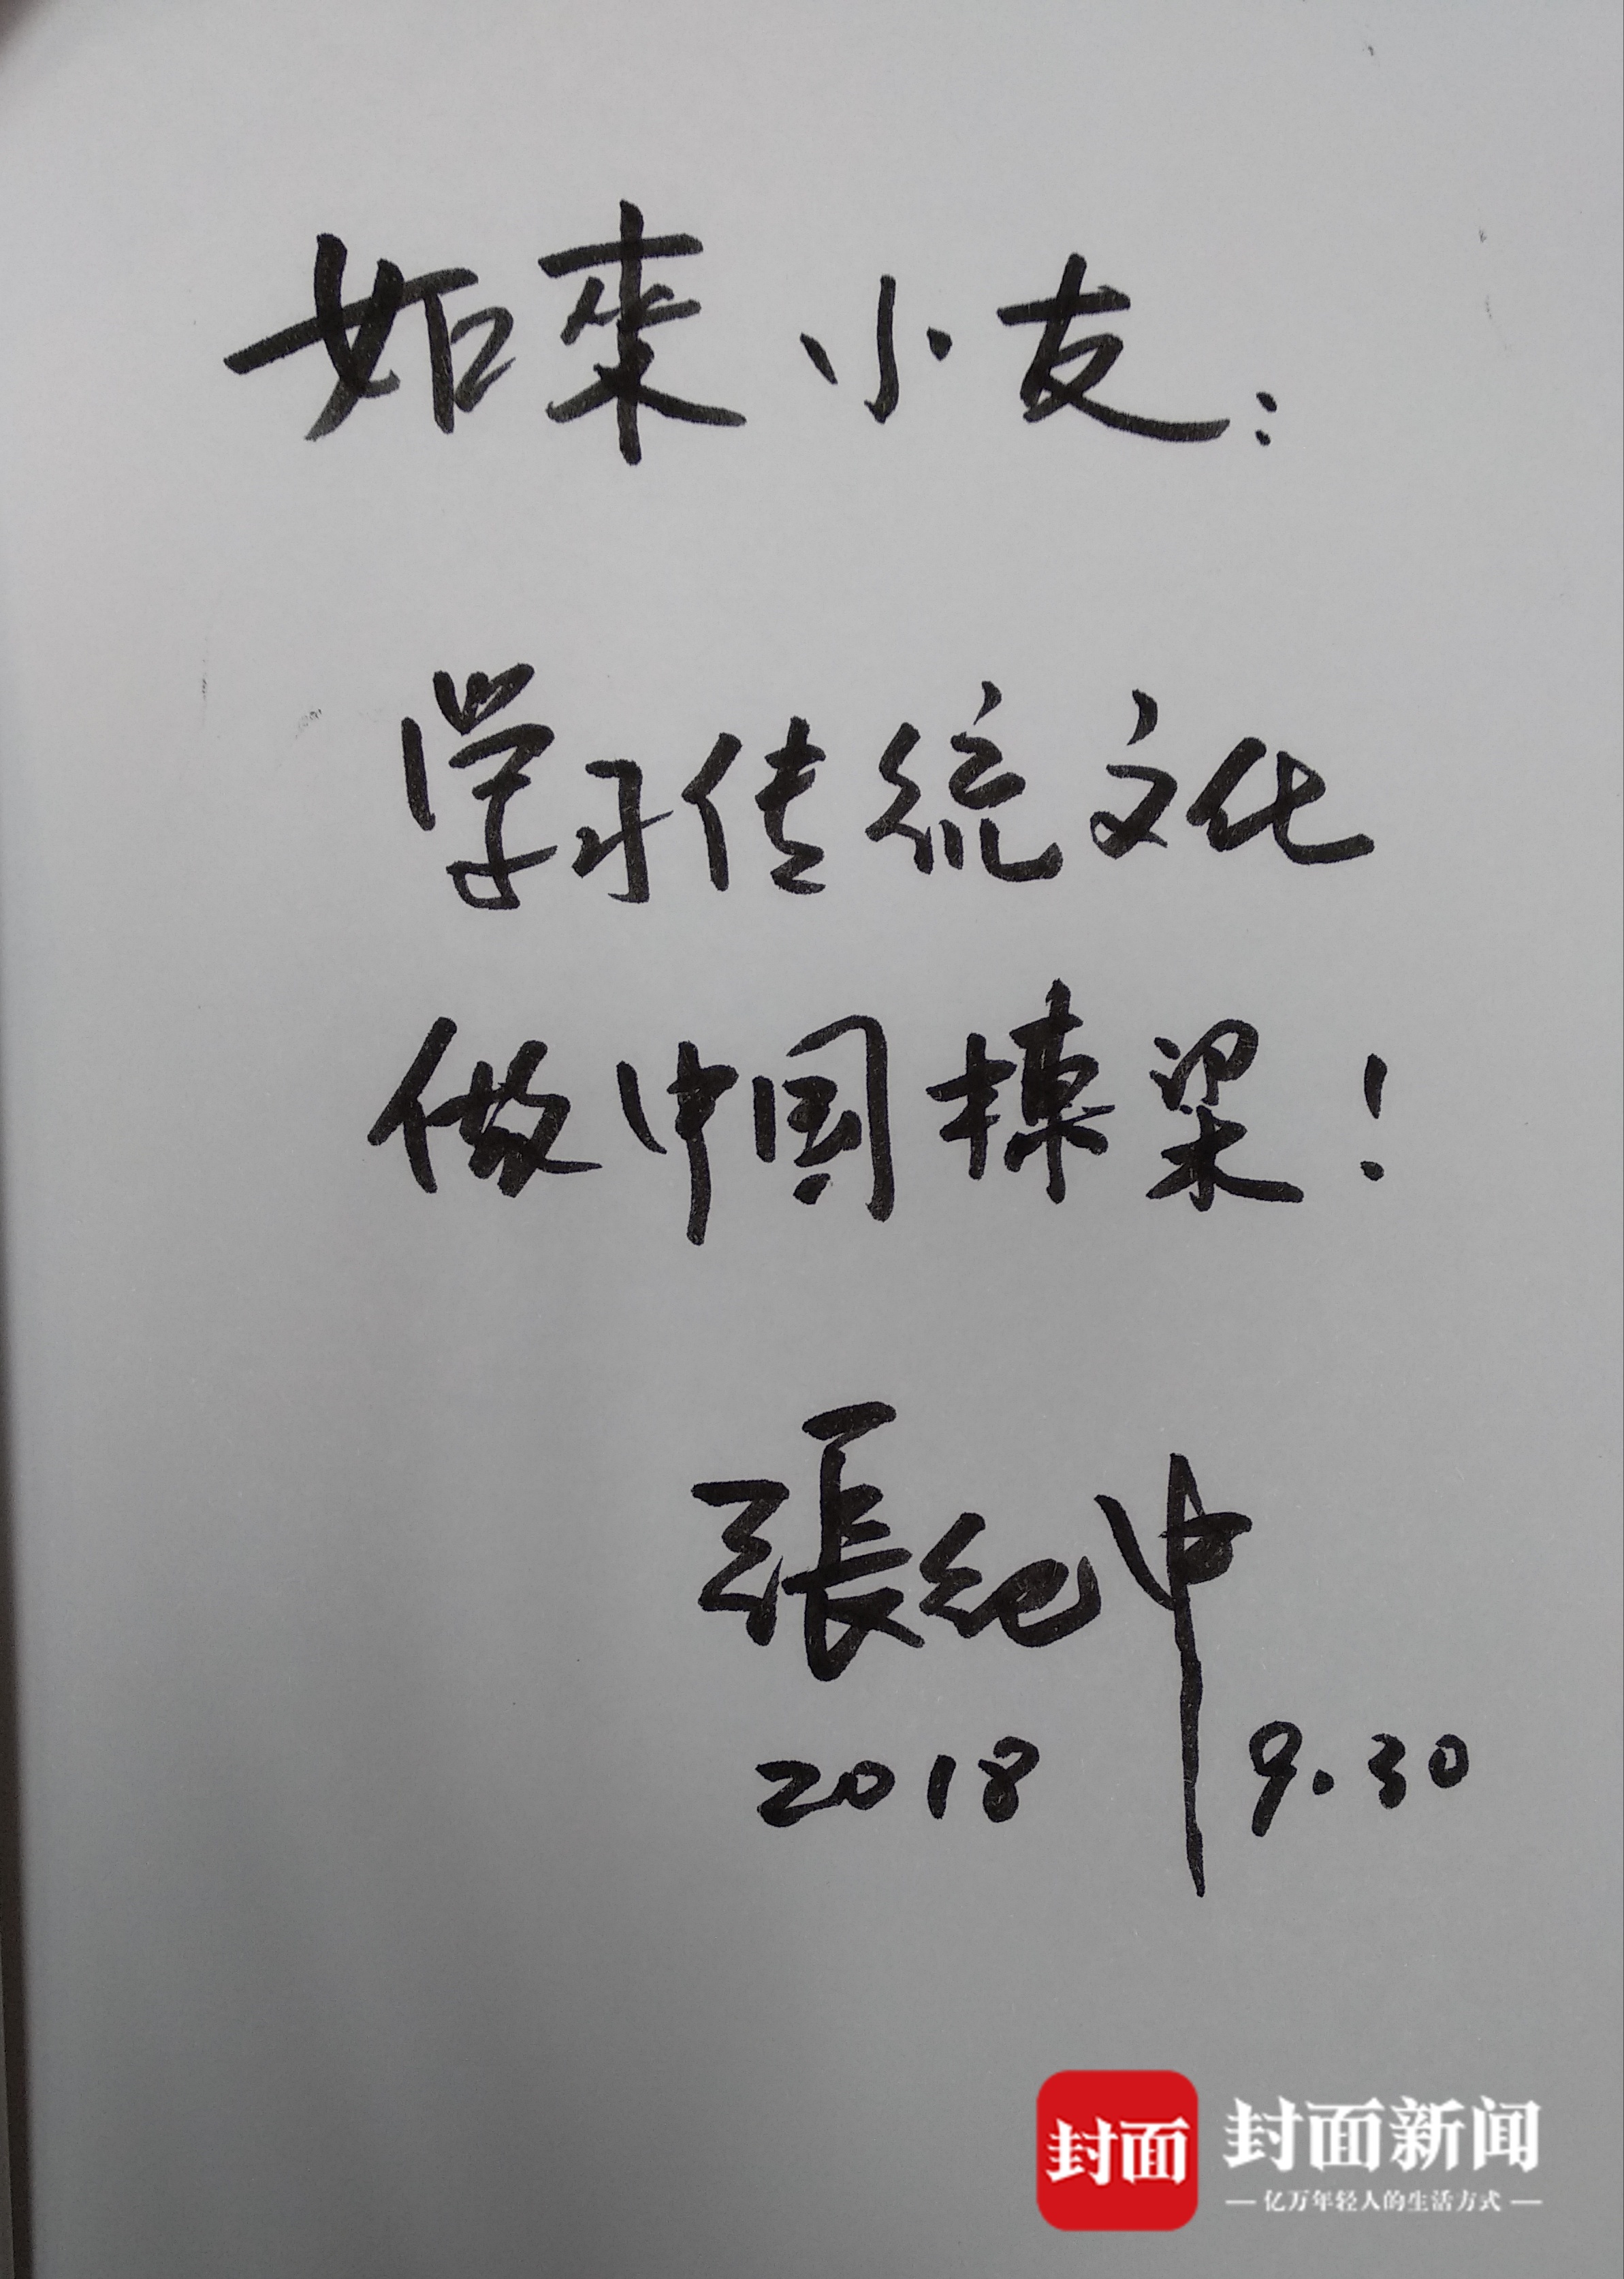 如來小友：
学习传统文化
做中国栋梁！
張纪中
2018 9.30
封面
封面新闻
亿万年轻人的生活方式